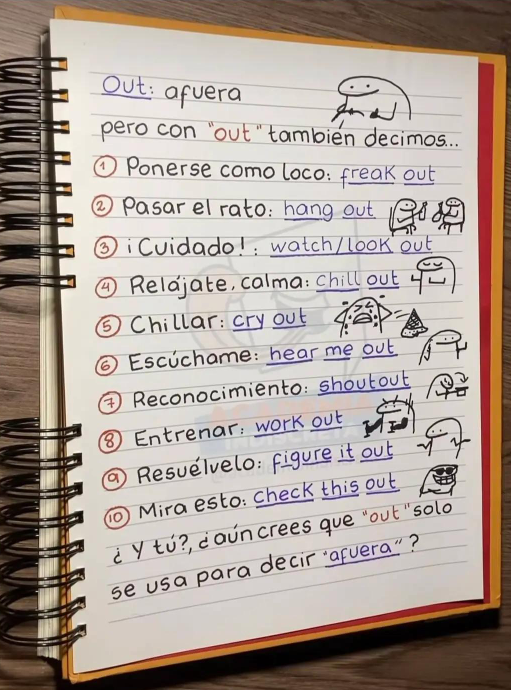 Out: afuera
pero con "out" también decimos...
1 Ponerse como loco: freak out
2 Pasar el rato: hang out
3 ¡Cuidado!: watch/look out
4 Relájate, calma: chill out
5 Chillar: cry out
6 Escúchame: hear me out
7 Reconocimiento: shoutout
8 Entrenar: work out
9 Resuélvelo: figure it out
10 Mira esto: check this out
¿Y tú?, ¿aún crees que "out" solo
se usa para decir "afuera"?